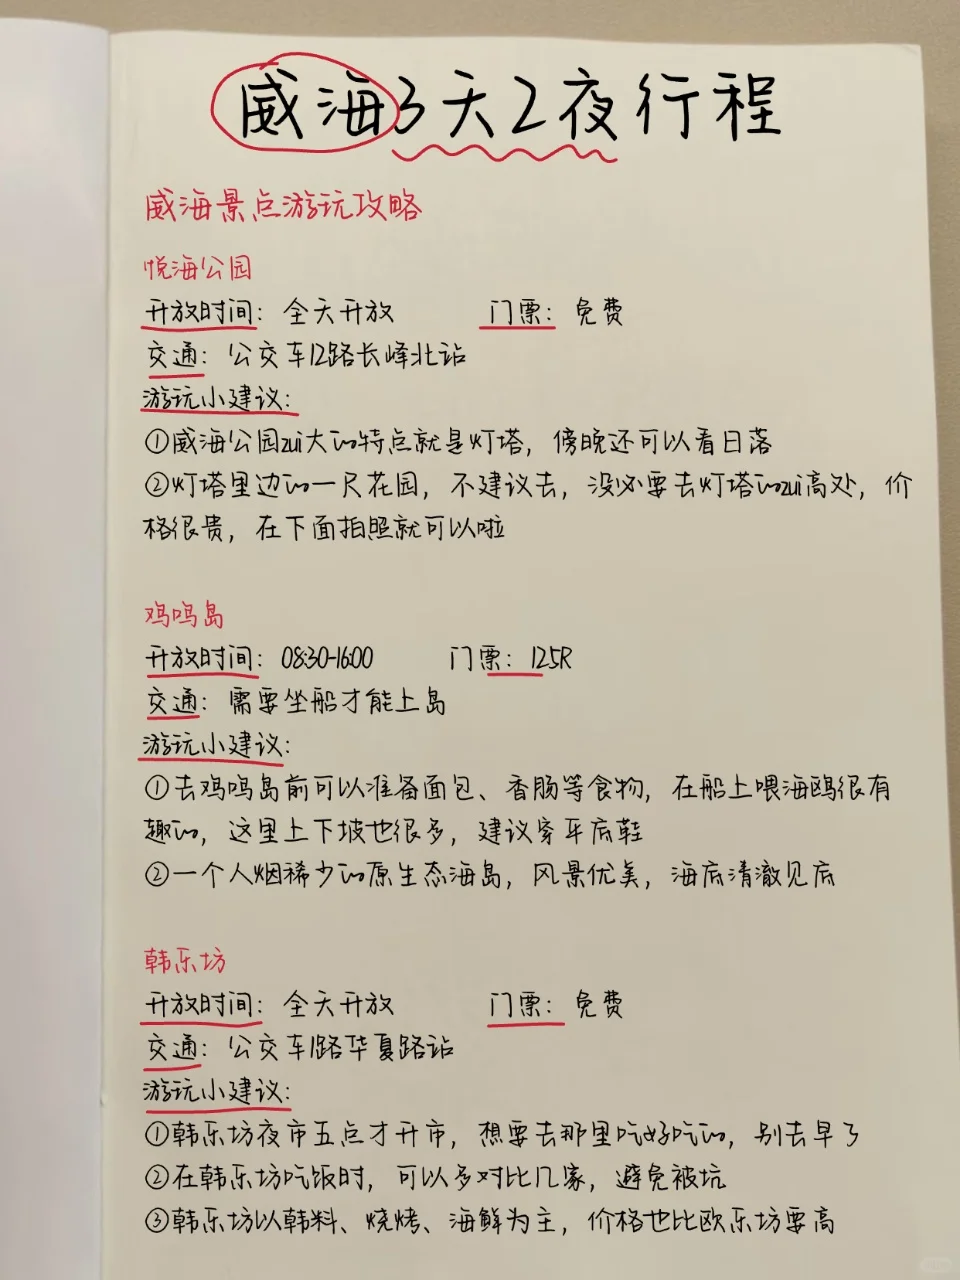 威海3天2夜行程
威海景点游玩攻略
悦海公园
开放时间：全天开放 门票：免费
交通：公交车12路长峰北站
游玩小建议：
①威海公园zui大的特点就是灯塔，傍晚还可以看日落
②灯塔里边的一尺花园，不建议去，没必要去灯塔的zui高处，价
格很贵，在下面拍照就可以啦
鸡鸣岛
开放时间：08:30-16:00 门票：125R
交通：需要坐船才能上岛
游玩小建议：
①去鸡鸣岛前可以准备面包、香肠等食物，在船上喂海鸥很有
趣的，这里上下坡也很多，建议穿平底鞋
②一个人烟稀少的原生态海岛，风景优美，海底清澈见底
韩乐坊
开放时间：全天开放 门票：免费
交通：公交车1路华夏路站
游玩小建议：
①韩乐坊夜市五点才开市，想要去那里吃好吃的，别去早了
②在韩乐坊吃饭时，可以多对比几家，避免被坑
③韩乐坊以韩料、烧烤、海鲜为主，价格也比欧乐坊要高